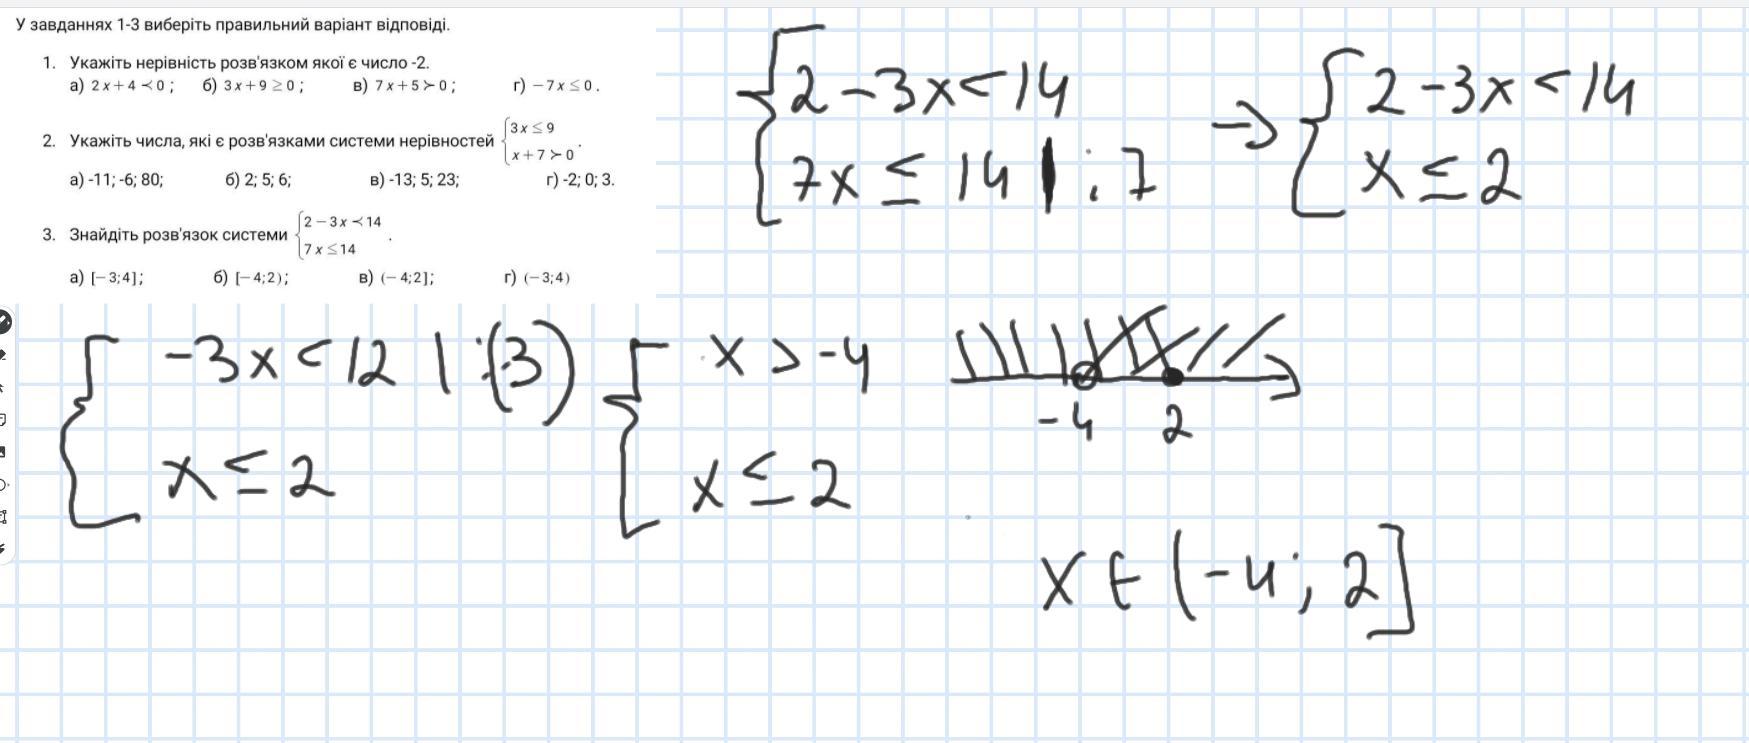 У завданнях 1-3 виберіть правильний варіант відповіді.
1. Укажіть нерівність розв'язком якої є число -2.
а) 2x+4≺0; б) 3x+9≥0; в) 7x+5≻0; г) −7x≤0.
2. Укажіть числа, які є розв'язками системи нерівностей {3x≤9
x+7≻0.
а) -11; -6; 80; б) 2; 5; 6; в) -13; 5; 23; г) -2; 0; 3.
3. Знайдіть розв'язок системи {2−3x≺14
7x≤14.
а) [−3;4]; б) [−4;2); в) (−4;2]; г) (−3;4)
{2−3x<14
7x≤14 | :7
→ {2−3x<14
x≤2
{−3x<12 | :(-3)
x≤2
{x>−4
x≤2
−4 2
x∈(−4; 2]